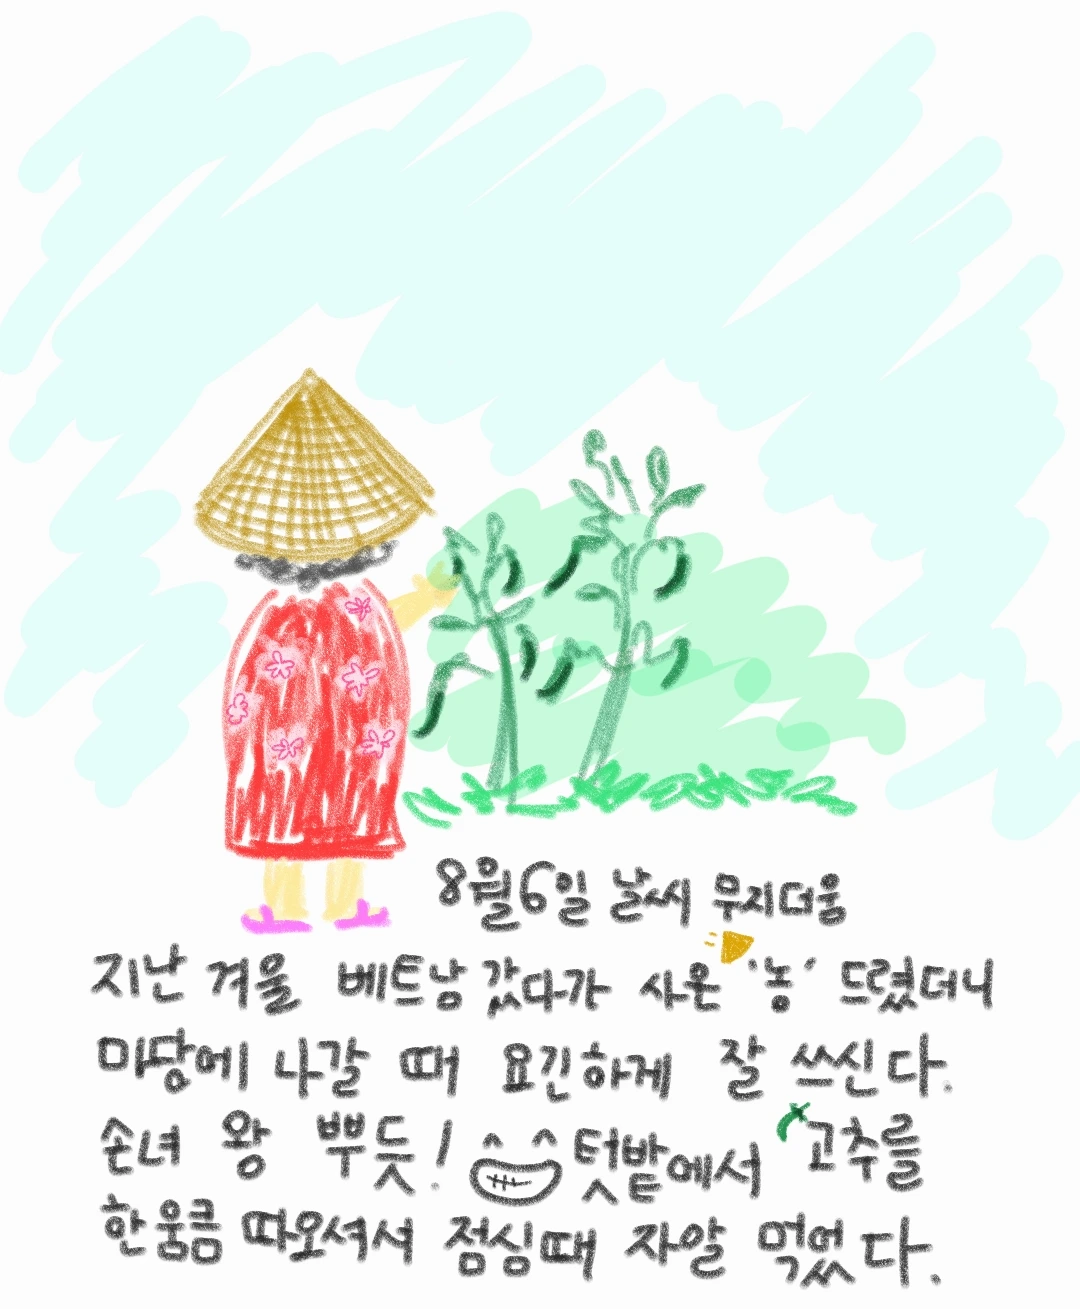 8월6일 날씨 무지더움
지난 겨울 베트남 갔다가 사온 '농' 드렸더니
마당에 나갈 때 요긴하게 잘 쓰신다.
손녀 왕 뿌듯! 텃밭에서 고추를
한움큼 따오셔서 점심때 자알 먹었다.